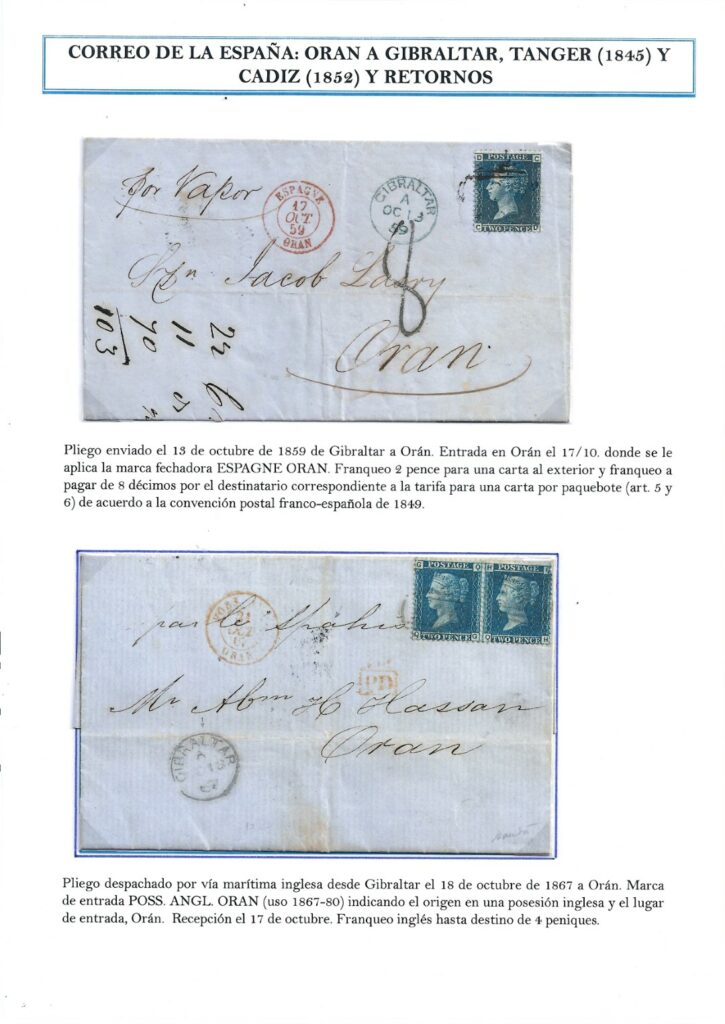 CORREO DE LA ESPAÑA: ORAN A GIBRALTAR, TANGER (1845) Y
CADIZ (1852) Y RETORNOS
POSTAGE
TWO PENCE
por Vapor
ESPAGNE
17
OCT
59
ORAN
GIBRALTAR
A
OC 13
59
8
Jacob
Oran
11
103
Pliego enviado el 13 de octubre de 1859 de Gibraltar a Orán. Entrada en Orán el 17/10. donde se le
aplica la marca fechadora ESPAGNE ORAN. Franqueo 2 pence para una carta al exterior y franqueo a
pagar de 8 décimos por el destinatario correspondiente a la tarifa para una carta por paquebote (art. 5 y
6) de acuerdo a la convención postal franco-española de 1849.
POSTAGE POSTAGE
TWO PENCE TWO PENCE
ORAN
par le Spahis
PD
Mr Abm H Hassan
Oran
GIBRALTAR
67
Pliego despachado por vía marítima inglesa desde Gibraltar el 18 de octubre de 1867 a Orán. Marca
de entrada POSS. ANGL. ORAN (uso 1867-80) indicando el origen en una posesión inglesa y el lugar
de entrada, Orán. Recepción el 17 de octubre. Franqueo inglés hasta destino de 4 peniques.